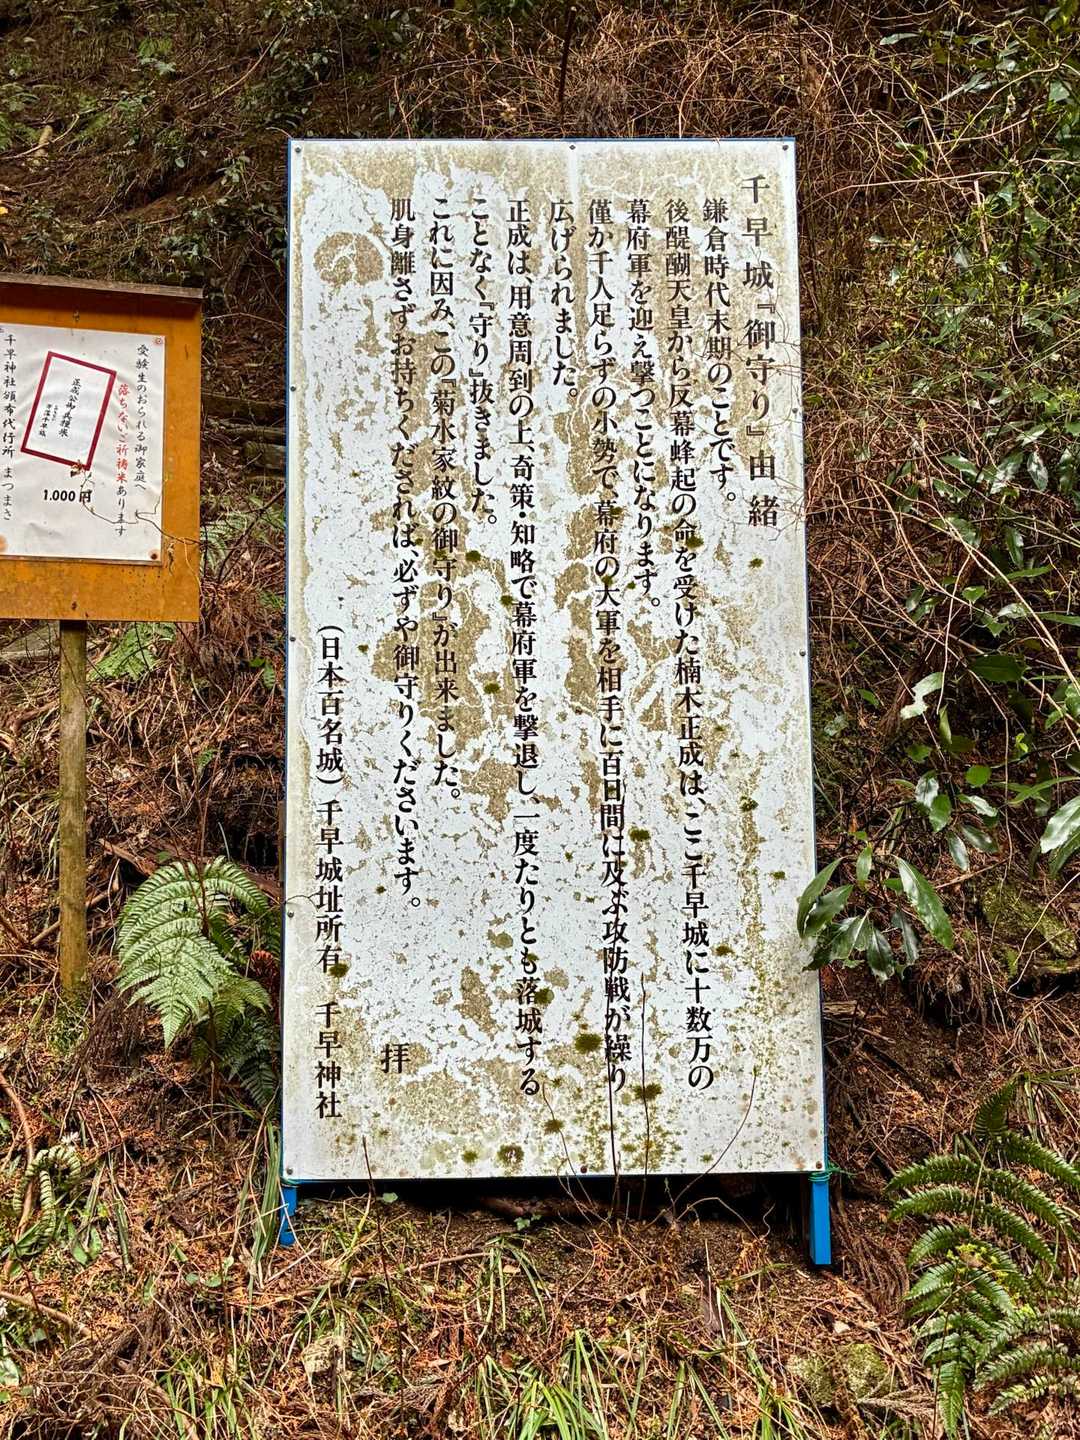 千早城『御守り』由緒
鎌倉時代末期のことです。
後醍醐天皇から反幕蜂起の命を受けた楠木正成は、ここ千早城に十数万の
幕府軍を迎え撃つことになります。
僅か千人足らずの小勢で、幕府の大軍を相手に百日間に及ぶ攻防戦が繰り
広げられました。
正成は用意周到の上、奇策・知略で幕府軍を撃退し、一度たりとも落城する
ことなく『守り』抜きました。
これに因み、この『菊水家紋の御守り』が出来ました。
肌身離さずお持ちくだされば、必ずや御守りくださいます。
拝
（日本百名城）千早城址所有　千早神社
受験生のおられる御家庭へ
落ちないご祈祷米あります
正成公御兵糧米
1.000円
千早神社頒布代行所 まつまさ